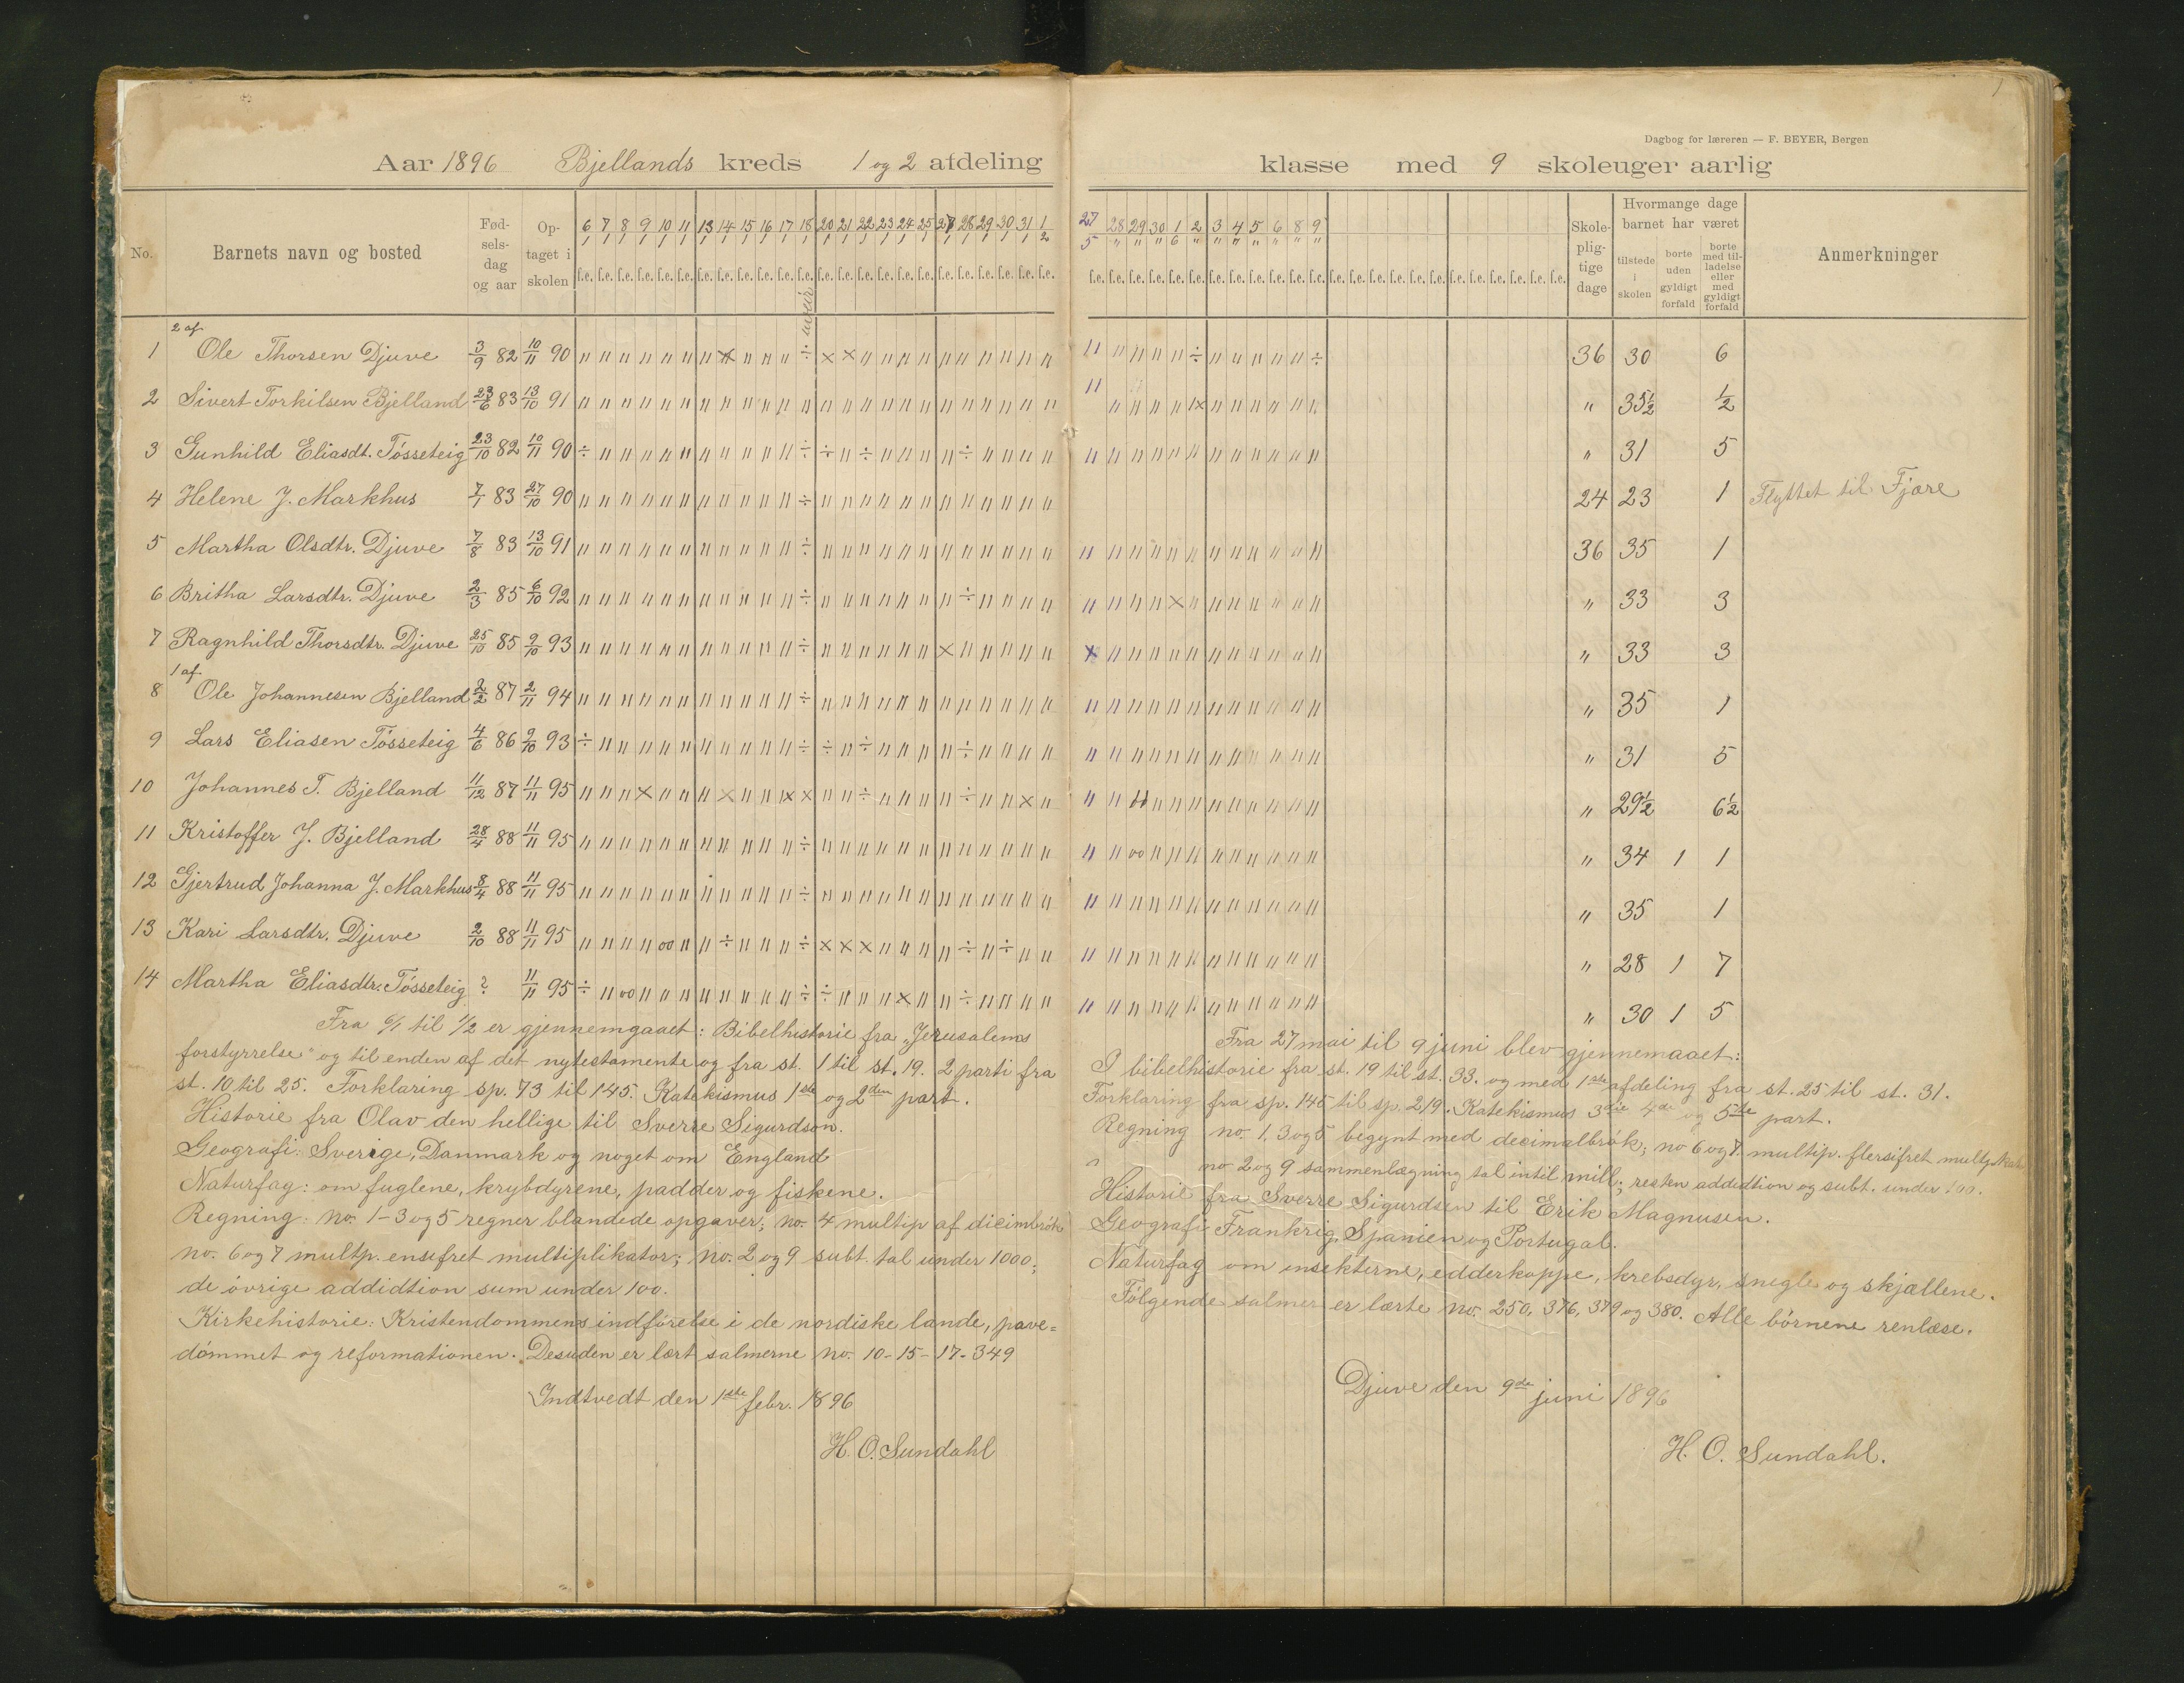 Dagbog for læreren — F. BEYER, Bergen
Aar 1896 Bjellands kreds 1 og 2 afdeling klasse med 9 skoleuger aarlig
No. Barnets navn og bosted Fødselsdag og aar Optaget i skolen
6 7 8 9 10 11 13 14 15 16 17 18 20 21 22 23 24 25 27 28 29 30 31 1/2
27/5 28 29 30 1/6 2 3 4 5 6 8 9
Skolepligtige dage
Hvormange dage barnet har været
tilstede i skolen
borte uden gyldigt forfald
borte med tilladelse eller med gyldigt forfald
Anmerkninger
2 af.
1 Ole Thorsen Djuve 3/9 82 10/11 90 36 30 6
2 Sivert Torkilsen Bjelland 23/6 83 13/10 91 " 35½ ½
3 Gunhild Eliasdt. Tósseteig 23/10 82 10/11 90 " 31 5
4 Helene J. Markhus 7/1 83 27/10 90 24 23 1 Flyttet til Fjære
5 Martha Olsdtr. Djuve 7/8 83 13/10 91 36 35 1
6 Britha Larsdtr. Djuve 2/3 85 6/10 92 " 33 3
7 Ragnhild Thorsdtr. Djuve 25/10 85 9/10 93 " 33 3
1 af.
8 Ole Johannesen Bjelland 87 2/11 94 " 35 1
9 Lars Eliasen Tósseteig 4/6 86 9/10 93 " 31 5
10 Johannes T. Bjelland 11/12 87 11/11 95 " 29½ 6½
11 Kristoffer J. Bjelland 28/4 88 11/11 95 " 34 1 1
12 Gjertrud Johanna J. Markhus 8/4 88 11/11 95 " 35 1
13 Kari Larsdtr. Djuve 2/10 88 11/11 95 " 28 1 7
14 Martha Eliasdtr. Tósseteig ? 11/11 95 " 30 1 5
Fra 6/1 til 1/2 er gjennemgaaet: Bibelhistorie fra „Jerusalems
forstyrrelse" og til enden af det nytestamente og fra st. 1 til st. 19. 2 parti fra
st. 10 til 25. Forklaring sp. 73 til 145. Katekismus 1ste og 2den part.
Historie fra Olav den hellige til Sverre Sigurdson.
Geografi: Sverige, Danmark og noget om England
Naturfag: om fuglene, krybdyrene, padder og fiskene.
Regning: No. 1-3 og 5 regner blandede opgaver; no. 4 multip af dicimbrók
no. 6 og 7 multp. ensifret multiplikator; no. 2 og 9 subt. tal under 1000;
de óvrige addidtion sum under 100.
Kirkehistorie: Kristendommens indfórelse i de nordiske lande, pave=
dómmet og reformationen. Desuden er lært salmerne no. 10-15-17-349
Indtvedt den 1ste febr. 1896
H. O. Sundahl
Fra 27 mai til 9 juni blev gjennemaaet:
I bibelhistorie fra st. 19 til st. 33. og med 1ste afdeling fra st. 25 til st. 31.
Forklaring fra sp. 145 til sp. 219. Katekismus 3die 4de og 5te part.
Regning no. 1, 3 og 5 begynt med decimalbrók; no 6 og 7 multip. flersifret
no 2 og 9 sammenlægning tal intil mill; resten addidtion og subt. under 100.
Historie fra Sverre Sigurdsen til Erik Magnusen.
Geografi Frankrig, Spanien og Portugal.
Naturfag om insekterne, edderkoppe, krebsdyr, snegle og skjællene.
Fólgende salmer er lærte no. 250, 376, 379 og 380. Alle bórnene renlæse.
Djuve den 9de juni 1896
H. O. Sundahl.